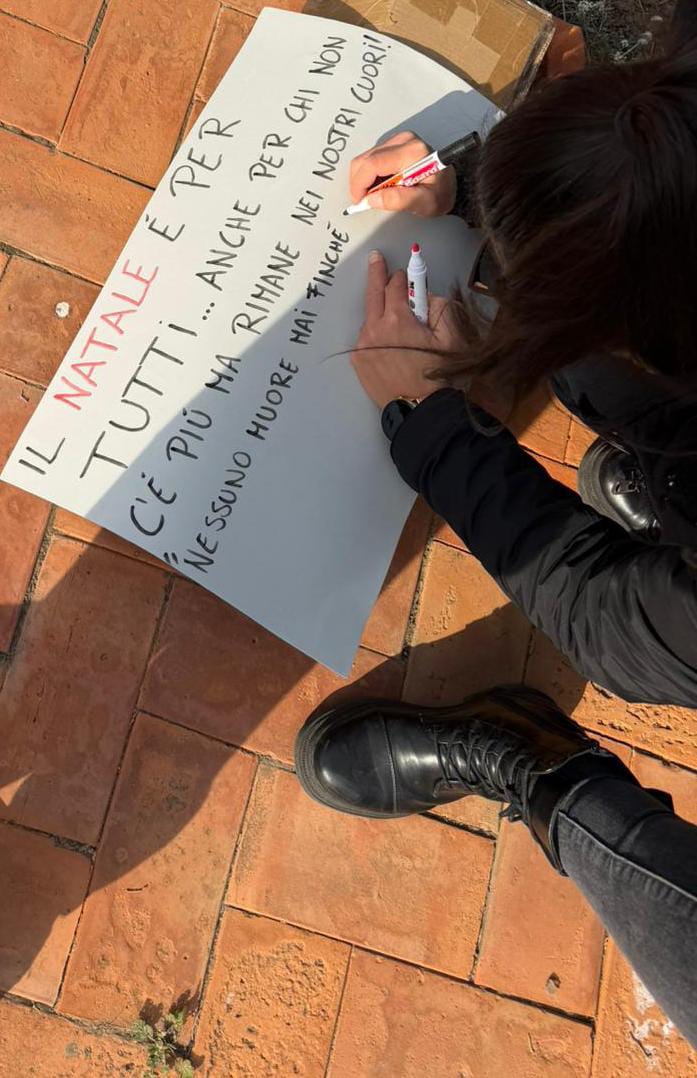 IL NATALE É PER
TUTTi...ANCHE PER CHI NON
C'É PIÚ MA RIMANE NEI NOSTRI CUORI!
"NESSUNO MUORE MAI FINCHÉ